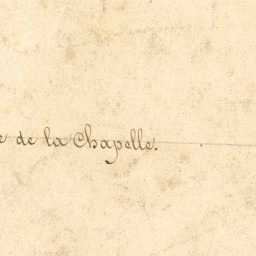 e de la Chapelle.